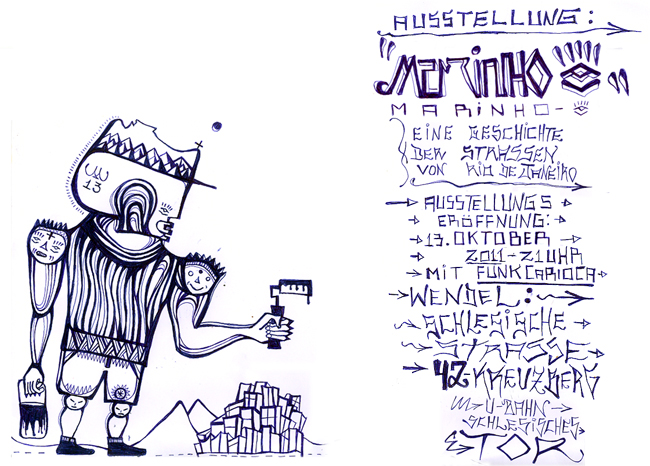 AUSSTELLUNG:
"MARiNHO"
MARiNHO-
EINE GESCHICHTE
DER STRASSEN
VON RIO DE JANEIRO
AUSSTELLUNGS
ERÖFFNUNG:
13. OKTOBER
2011-21 UHR
MIT FUNK CARIOCA
WENDEL:
SCHLESISCHE
STRASSE
42-KREUZBERG
U-BAHN
SCHLESISCHES
TOR
13